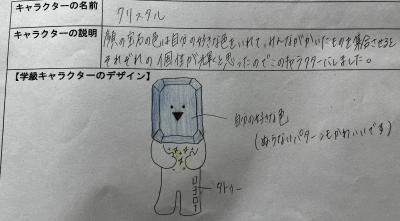 キャラクターの名前
クリスタル
キャラクターの説明
顔の宝石の色は自分の好きな色をいれて、みんながかいたものを集合させると
それぞれの個性が輝くと思ったのでこのキャラクターにしました。
【学級キャラクターのデザイン】
自分の好きな色
(ぬらないパターンもかわいいです)
タトゥー